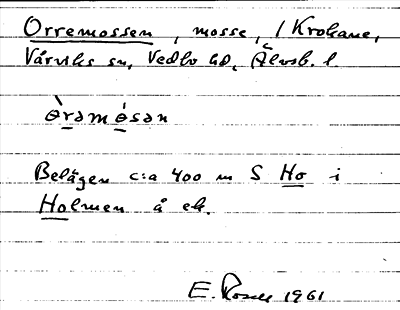 Orremossen, mosse, / Krokane,
Vårviks sn, Vedbo hd, Älvsb. l.
òrəmósən
Belägen c:a 400 m S Ho i
Holmen å ek.
E. 1961